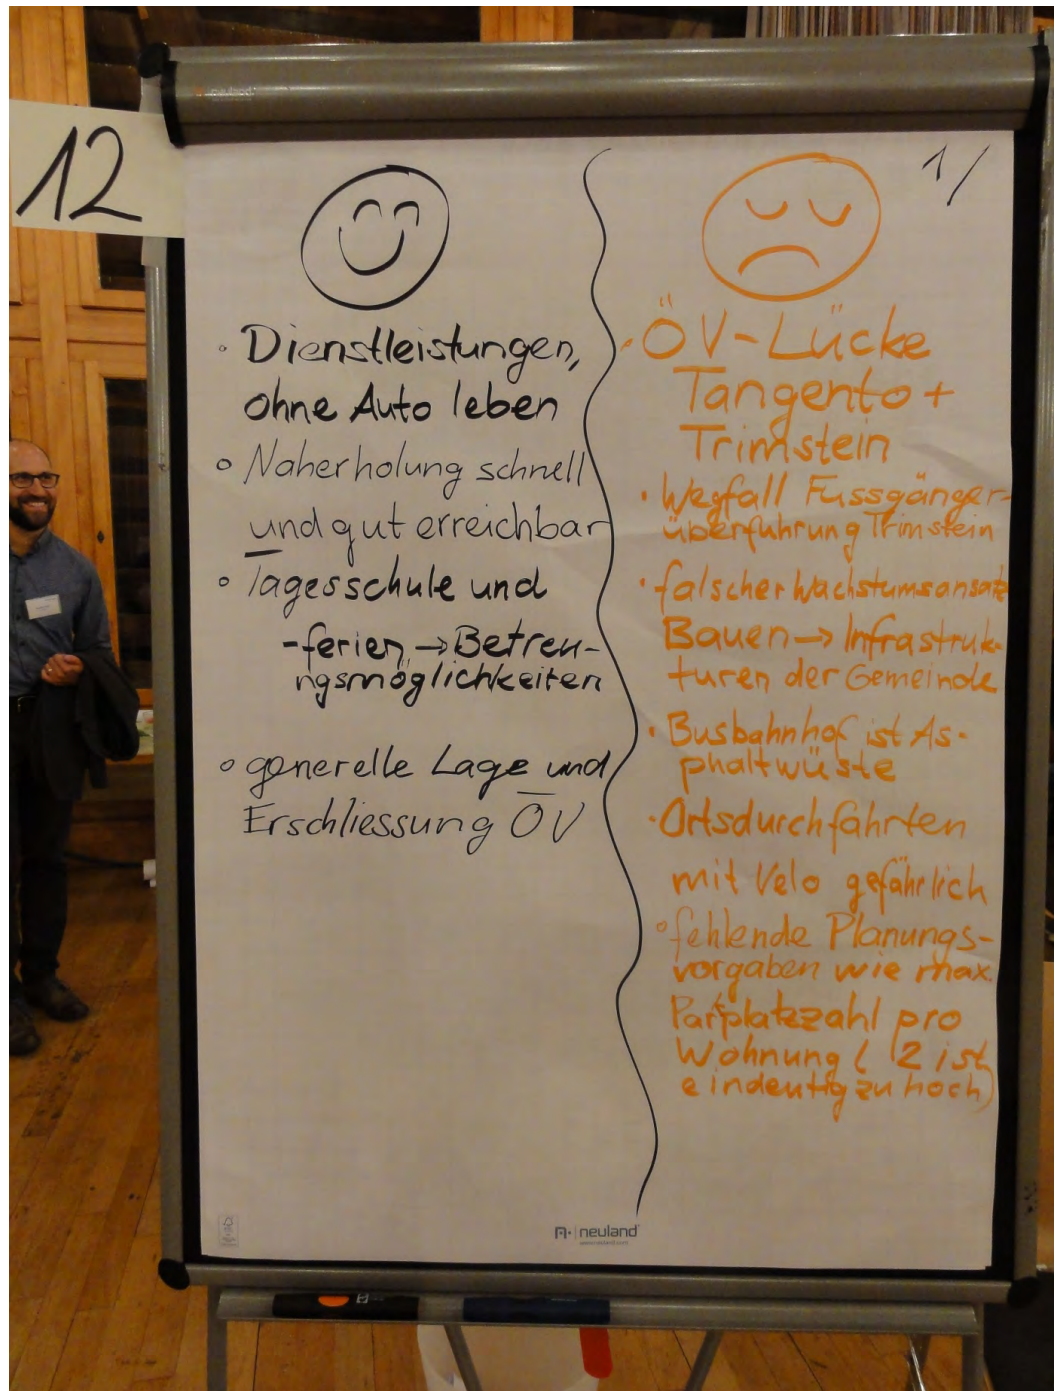 neuland
12
1/
Dienstleistungen,
ohne Auto leben
Naherholung schnell
und gut erreichbar
Tagesschule und
-ferien → Betreu-
ungsmöglichkeiten
generelle Lage und
Erschliessung ÖV
ÖV-Lücke
Tangento +
Trimstein
Wegfall Fussgänger-
überführung Trimstein
falscher Wachstumsansatz
Bauen → Infrastruk-
turen der Gemeinde
Busbahnhof ist As-
phaltwüste
Ortsdurchfahrten
mit Velo gefährlich
fehlende Planungs-
vorgaben wie max.
Parkplatzzahl pro
Wohnung ( 2 ist
eindeutig zu hoch)
neuland